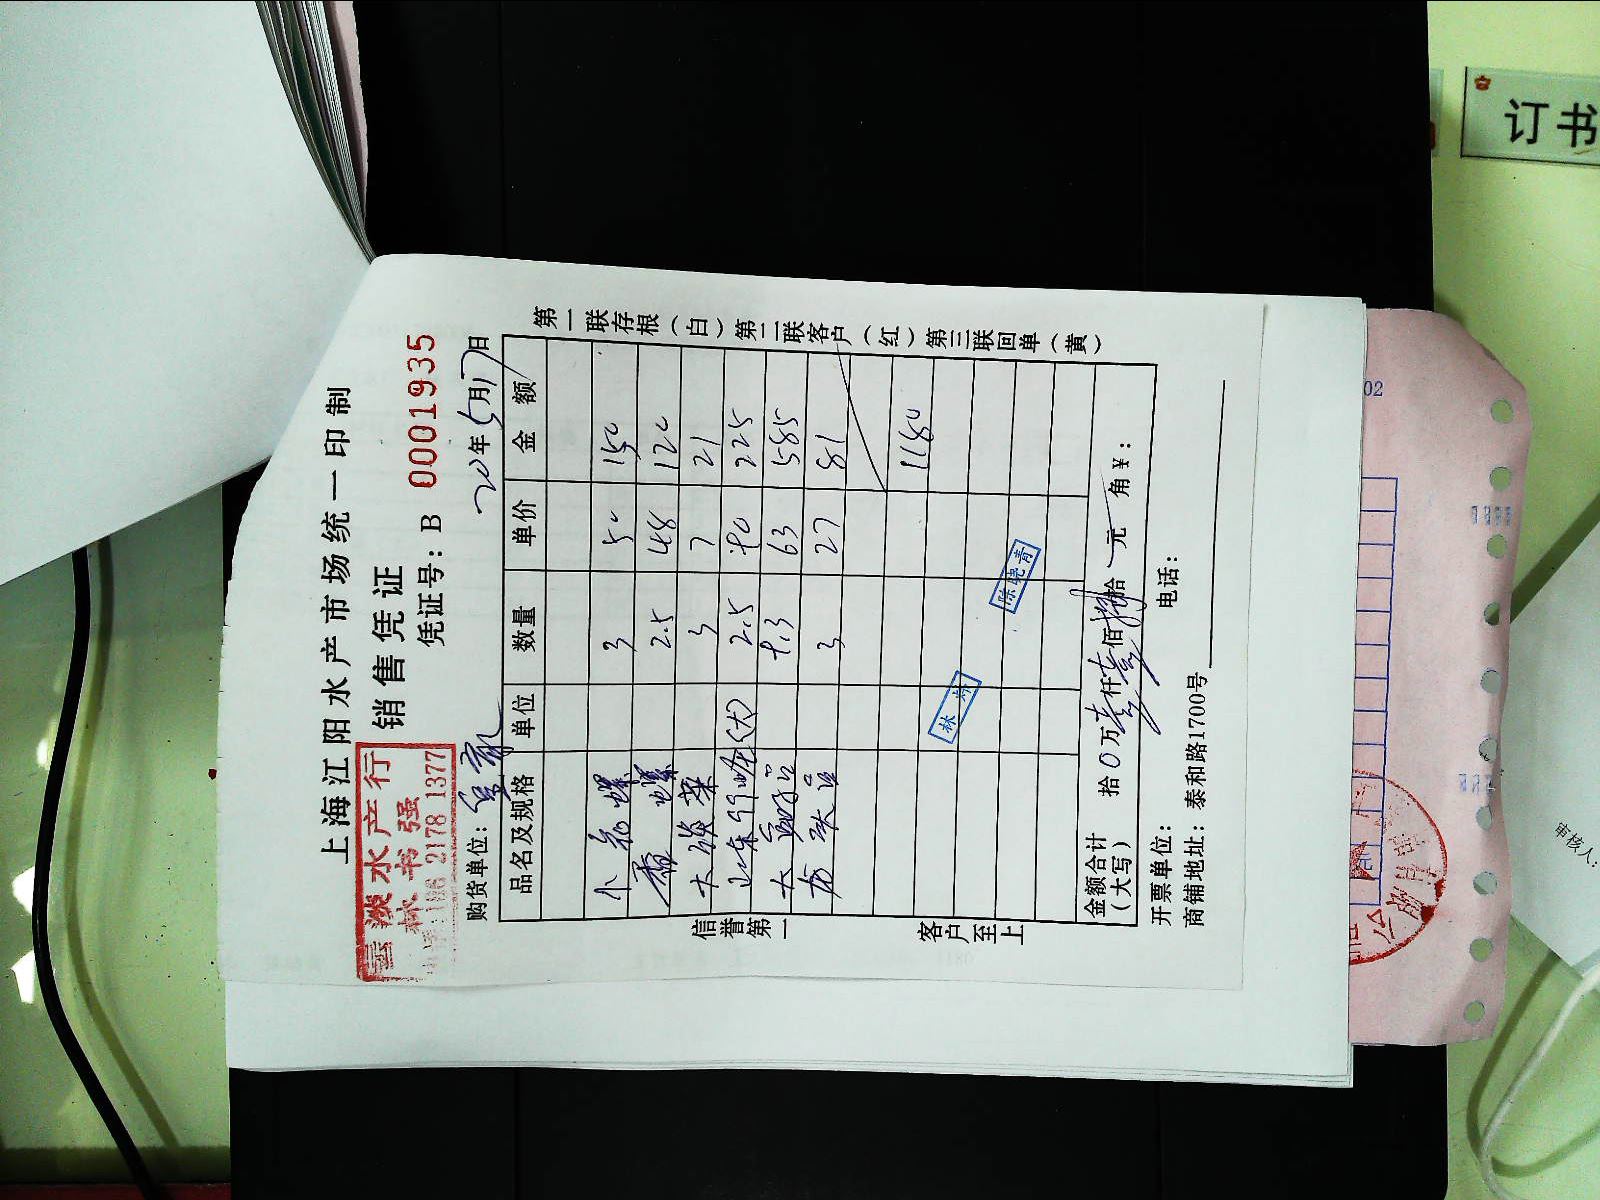 上海江阳水产市场统一印制
销售凭证
凭证号：B 0001935
淡水产行
林书强
2178 1377
购货单位：
年5月17日
品名及规格 单位 数量 单价 金额
小 螺 3 50 150
香螺 2.5 48 120
大 3 7 21
2.5 90 225
大 9.3 63 585
龙头 3 27 81
1180
金额合计（大写） 拾0万壹仟壹佰捌拾 元 角 ¥：
开票单位： 电话：
商铺地址：泰和路1700号
信誉第一
客户至上
第一联存根（白）第二联客户（红）第三联回单（黄）
陈晓青
林
订书
02
审核人：